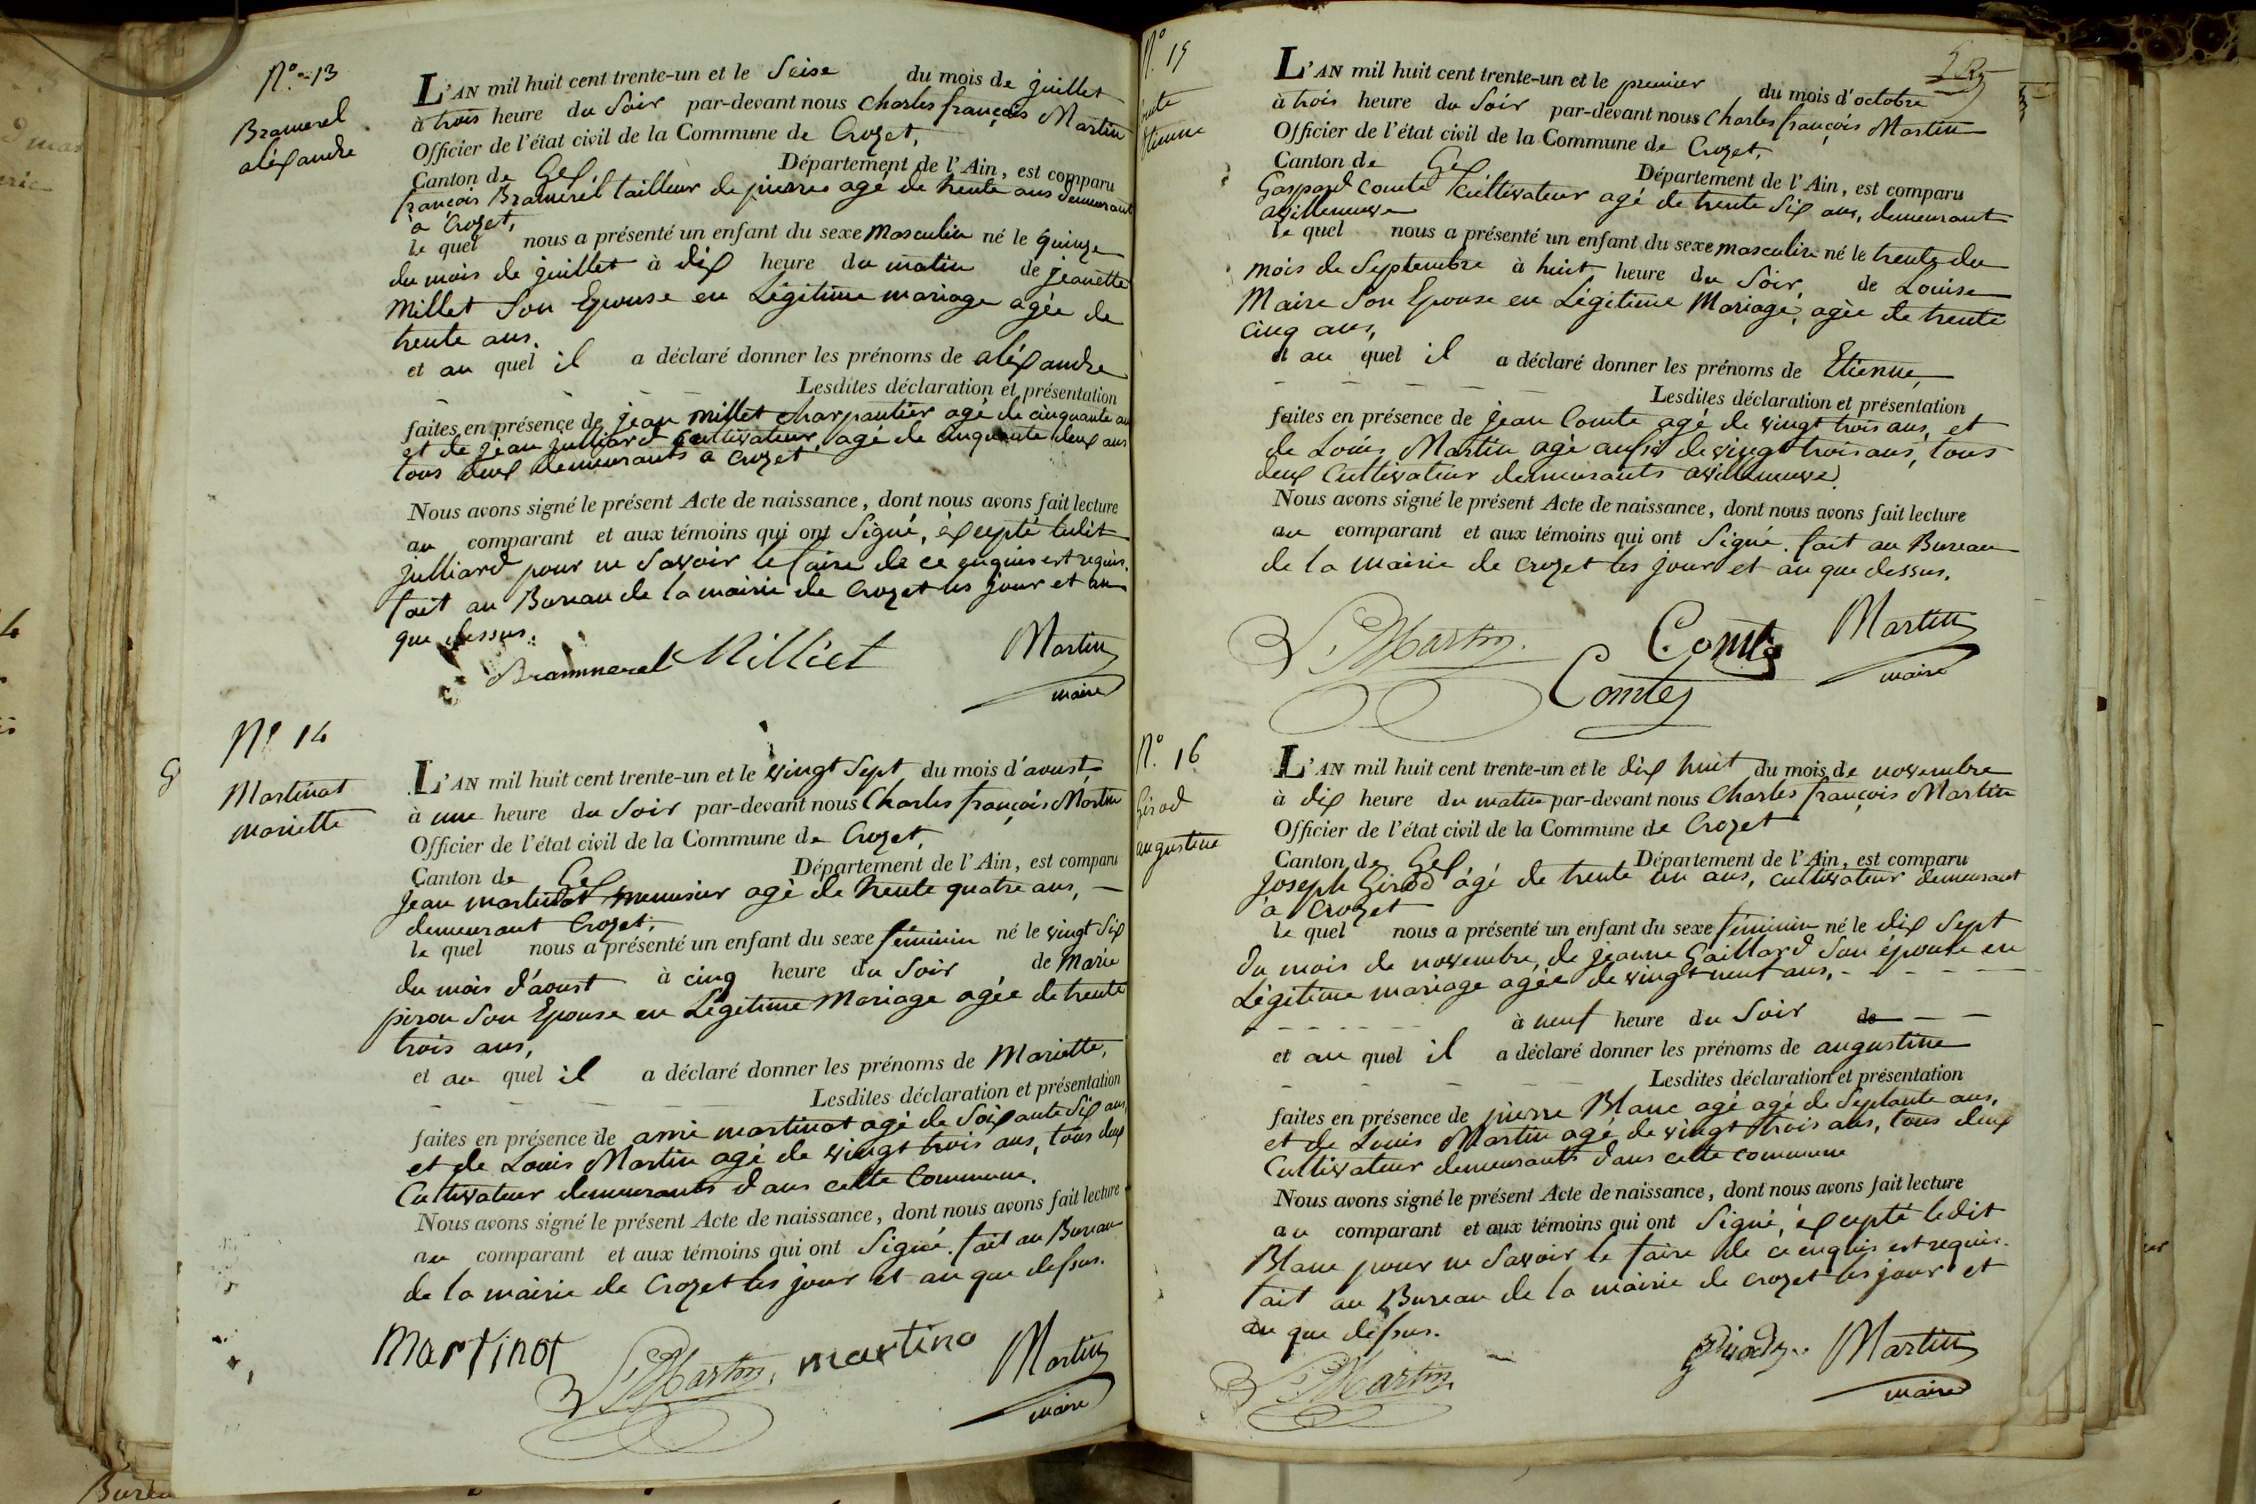 N.° 13
Bramerel
aléxandre
L'AN mil huit cent trente-un et le Seise du mois de juillet
à trois heure du Soir par-devant nous Charles françois Martin
Officier de l'état civil de la Commune de Crozet,
Canton de Gex, Département de l'Ain, est comparu
françois Bramerel tailleur de pierres agé de trente ans demeurant
à Crozet,
le quel nous a présenté un enfant du sexe Masculin né le quinze
du mois de juillet à dix heure du matin de jeanètte
Millet Son Epouse en Légitime mariage agée de
trente ans.
et au quel il a déclaré donner les prénoms de aléxandre
Lesdites déclaration et présentation
faites en présence de jean Millet charpantier agé de cinquante ans
et de jean julliard Cultivateur, agé de cinquante deux ans
tous deux demeurants à Crozet
Nous avons signé le présent Acte de naissance, dont nous avons fait lecture
au comparant et aux témoins qui ont Signé, éxcepté ledit
julliard pour ne Savoir le faire de ce enquis est requis.
fait au Bureau de la mairie de Crozet les jour et an
que dessus.
Brammerel Milliet Martin
maire
N.° 14
Martinat
mariette
L'AN mil huit cent trente-un et le vingt Sept du mois d'aoust
à une heure du Soir par-devant nous Charles françois Martin
Officier de l'état civil de la Commune de Crozet,
Canton de Gex Département de l'Ain, est comparu
jean martinat menuisier agé de trente quatre ans,
demeurant Crozet,
le quel nous a présenté un enfant du sexe féminin né le vingt Six
du mois d'aoust à cinq heure du Soir, de Marie
piron Son Epouse en Légitime Mariage agée de trente
trois ans,
et au quel il a déclaré donner les prénoms de Mariette,
Lesdites déclaration et présentation
faites en présence de amé martinat agé de Soixante Six ans,
et de Louis Martin agé de vingt trois ans, tous deux
Cultivateur demeurants dans cette Commune.
Nous avons signé le présent Acte de naissance, dont nous avons fait lecture
au comparant et aux témoins qui ont Signé. fait au Bureau
de la mairie de Crozet les jour et an que dessus.
Martinot L. Martin, martino Martin
maire
N.° 15
Etienne
L'AN mil huit cent trente-un et le premier du mois d'octobre
à trois heure du Soir par-devant nous Charles françois Martin
Officier de l'état civil de la Commune de Crozet,
Canton de Gex Département de l'Ain, est comparu
Gaspard Comte Cultivateur agé de trente Six ans, demeurant
avilleneuve
le quel nous a présenté un enfant du sexe masculin né le trente du
mois de Septembre à huit heure du Soir, de Louise
Maire Son Epouse en Légitime Mariage, agée de trente
cinq ans,
et au quel il a déclaré donner les prénoms de Etienne,
Lesdites déclaration et présentation
faites en présence de jean Comte agé de vingt trois ans, et
de Louis Martin agé aussi de vingt trois ans, tous
deux Cultivateur demeurants avilleneuve.
Nous avons signé le présent Acte de naissance, dont nous avons fait lecture
au comparant et aux témoins qui ont Signé. fait au Bureau
de la mairie de Crozet les jour et an que dessus.
L. Martin. Comte Martin
Comte maire
N.° 16
Girod
augustine
L'AN mil huit cent trente-un et le dix huit du mois de novembre
à dix heure du matin par-devant nous Charles françois Martin
Officier de l'état civil de la Commune de Crozet
Canton de Gex Département de l'Ain, est comparu
joseph Girod agé de trente un ans, cultivateur demeurant
à Crozet
le quel nous a présenté un enfant du sexe féminin né le dix Sept
du mois de novembre, de jeanne Gaillard Son épouse en
Légitime mariage agée de vingt neuf ans,
à neuf heure du Soir de
et au quel il a déclaré donner les prénoms de augustine
Lesdites déclaration et présentation
faites en présence de pierre Blanc agé agé de Septante ans,
et de Louis Martin agé de vingt trois ans, tous deux
Cultivateur demeurants dans cette commune
Nous avons signé le présent Acte de naissance, dont nous avons fait lecture
au comparant et aux témoins qui ont Signé, éxcepté ledit
Blanc pour ne Savoir le faire de ce enquis est requis.
fait au Bureau de la mairie de Crozet les jour et
an que dessus.
L. Martin Girod Martin
maire